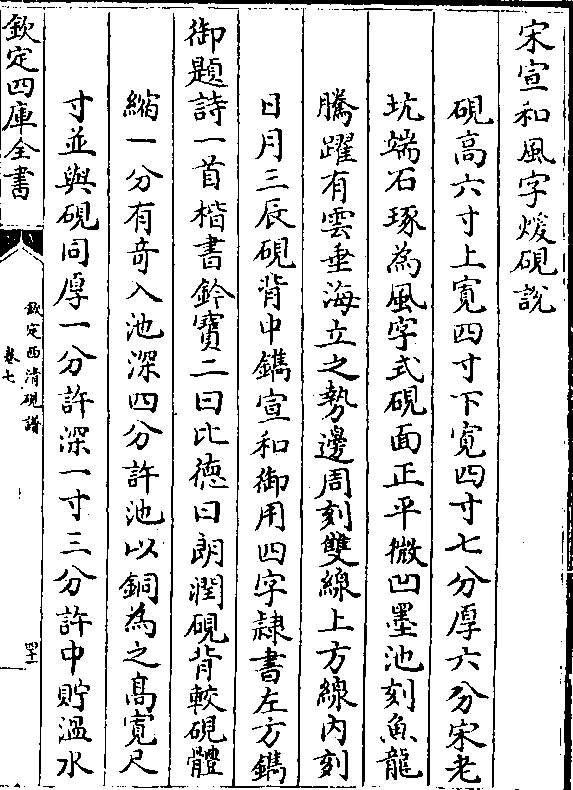 宋宣和風字煖硯說
硯高六寸上寛四寸下寛四寸七分厚六分宋老
坑端石琢為風字式硯面正平微凹墨池刻魚龍
騰躍有雲垂海立之勢邊周刻雙線上方線內刻
日月三辰硯背中鐫宣和御用四字隷書左方鐫
御題詩一首楷書鈐寶二曰比德曰朗潤硯背較硯體
縮一分有竒入池深四分許池以銅為之髙寛尺
寸並與硯同厚一分許深一寸三分許中貯溫水
欽定四庫全書
欽定西清硯譜
卷七